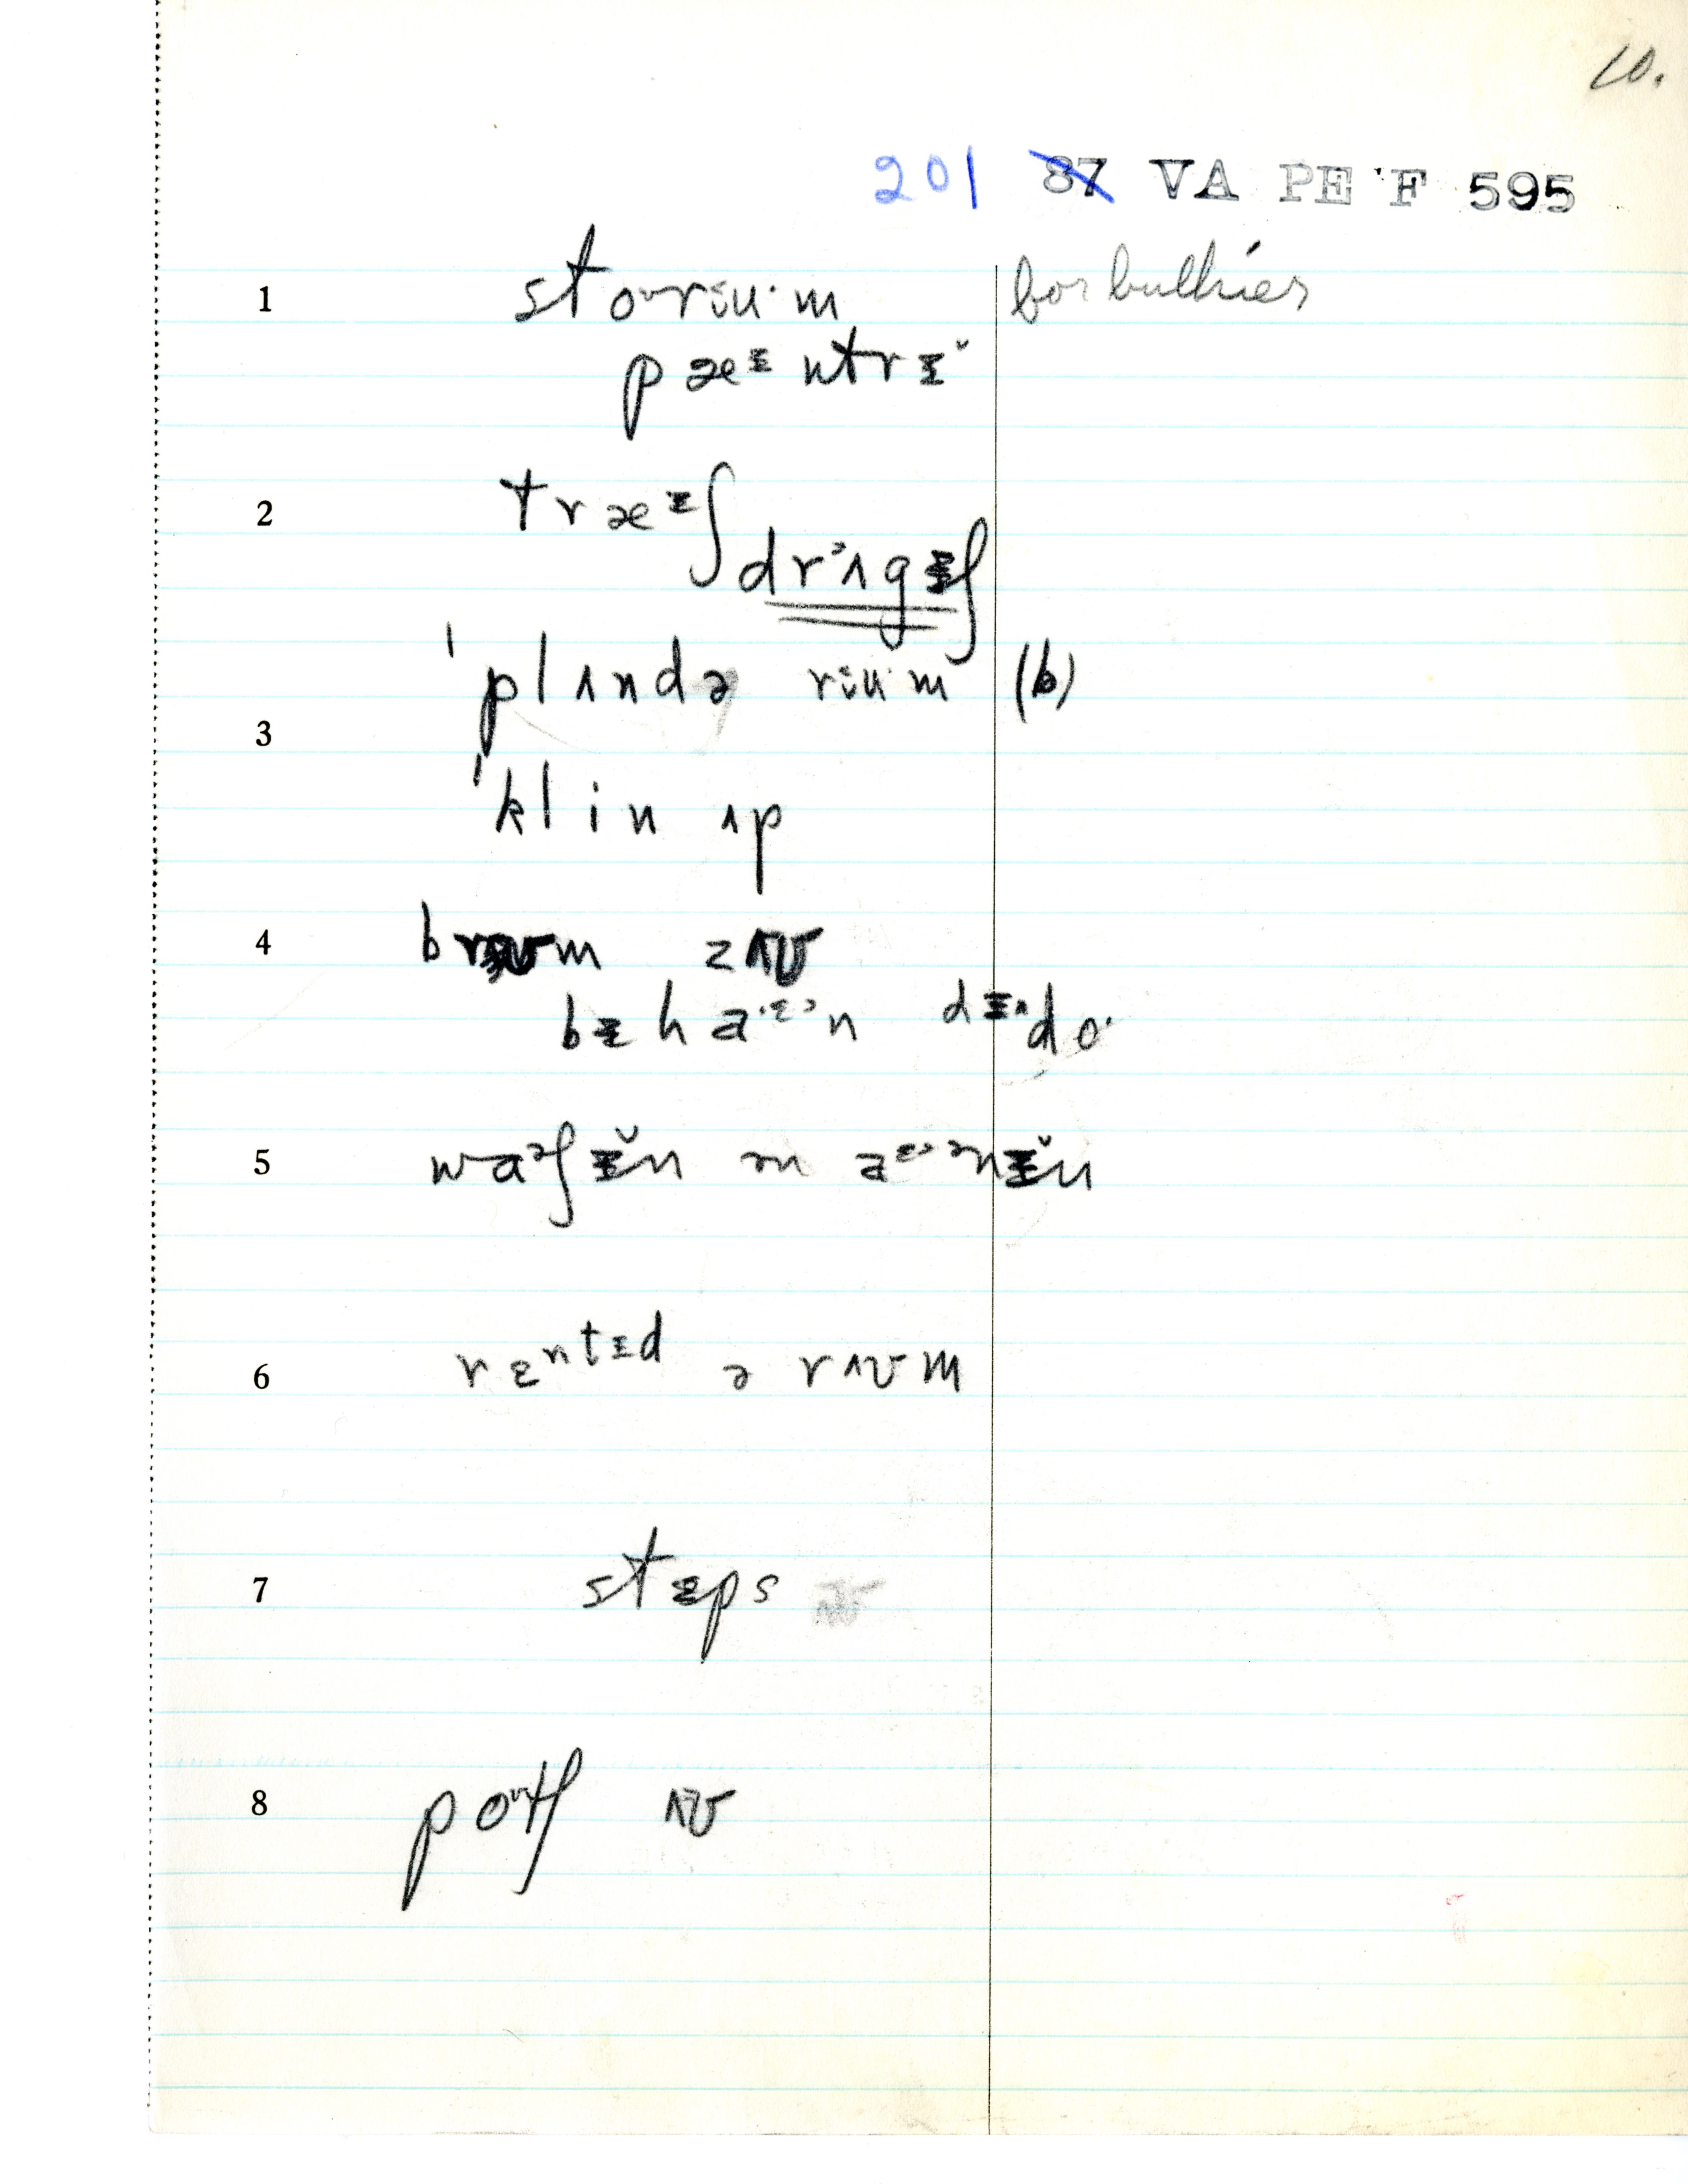 10.
201 87 VA PE F 595
1 stoᶷrɨu·m for bulkier
pæᶤntrɪ̆
2 træᶤʃ
drᵊʌgɪʃ
ˈplʌndə rɨu·m (b)
3
ˈklin ʌp
4 brʊm zʌʊ
bɪhaᵋᵊn dɪᵊdo·
5 waᵊʃɪ̆n n aᵋᵊnɪ̆n
6 rɛntɪd ə rʌʊm
7 stɛps
8 poᶷtʃ ʌʊ